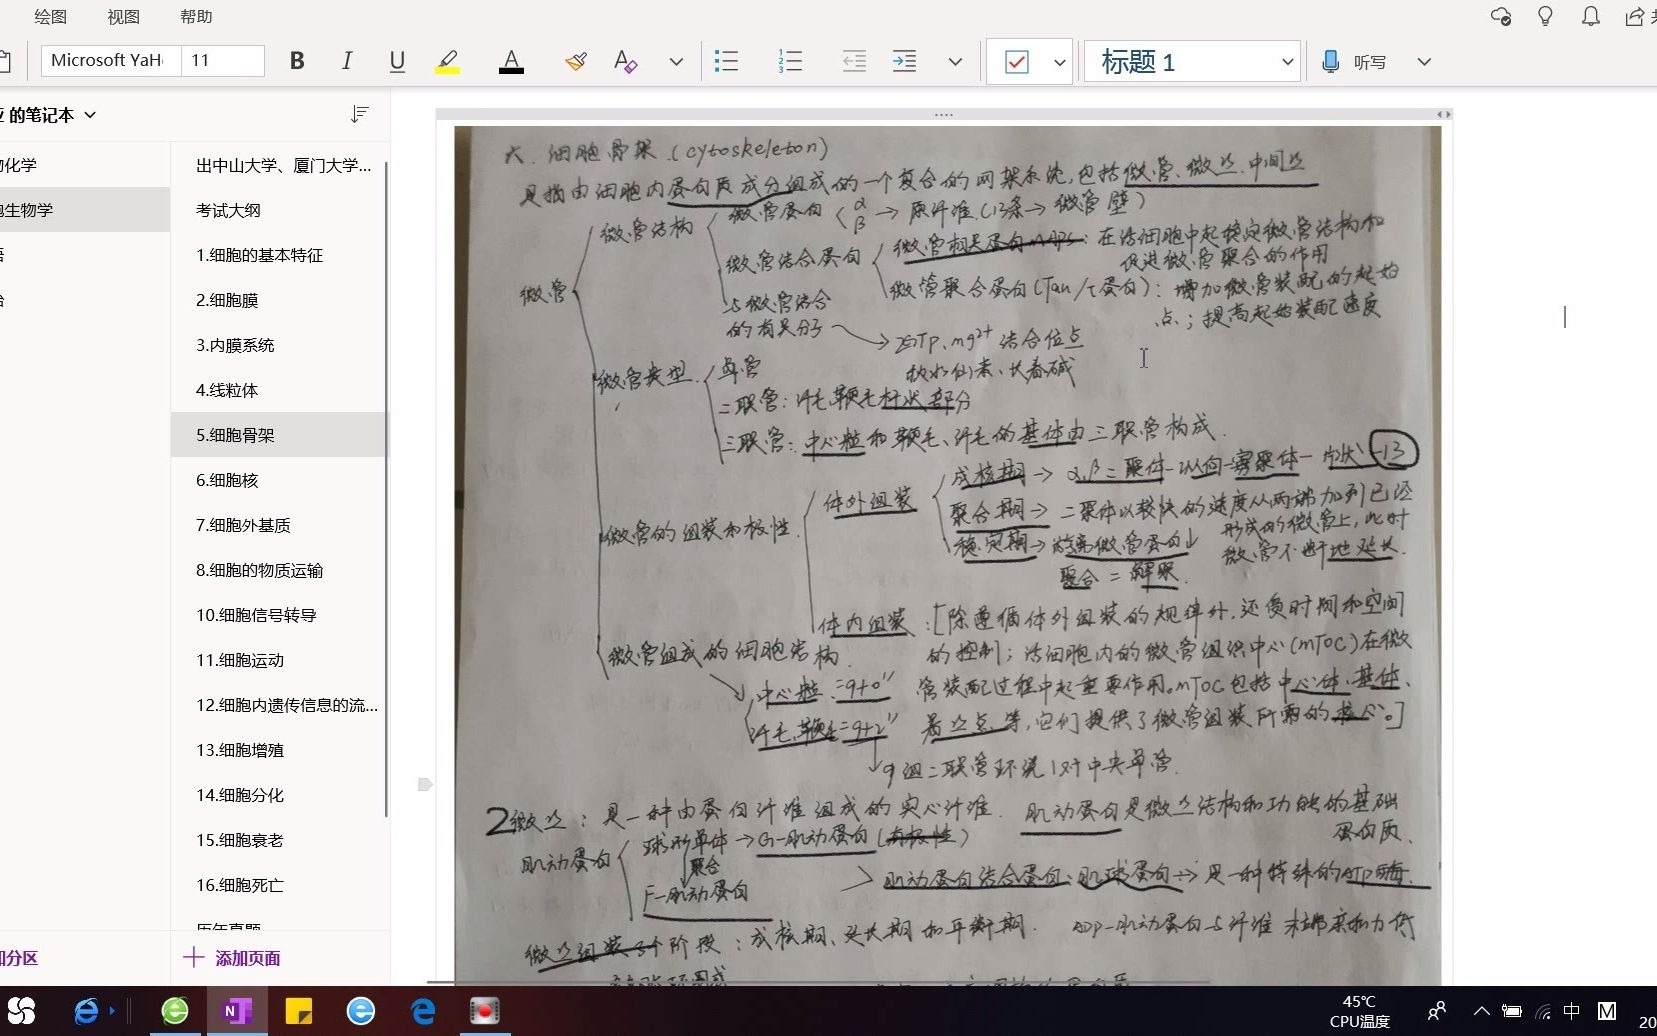 绘图 视图 帮助
Microsoft YaH 11 B I U A 标题 1 听写
的笔记本
化学
生物学
出中山大学、厦门大学...
考试大纲
1.细胞的基本特征
2.细胞膜
3.内膜系统
4.线粒体
5.细胞骨架
6.细胞核
7.细胞外基质
8.细胞的物质运输
10.细胞信号转导
11.细胞运动
12.细胞内遗传信息的流...
13.细胞增殖
14.细胞分化
15.细胞衰老
16.细胞死亡
历年真题
分区
添加页面
六.细胞骨架.(cytoskeleton)
是指由细胞内蛋白质成分组成的一个复合的网架系统,包括微管、微丝.中间丝
微管
微管结构
微管蛋白 α β → 原纤维(13条→微管壁)
微管结合蛋白
微管相关蛋白MAPs:在活细胞中起稳定微管结构和
促进微管聚合的作用
微管聚合蛋白(Tau/τ蛋白):增加微管装配的起始
点;提高起始装配速度
与微管结合
的有关分子
2GTP、mg2+ 结合位点
秋水仙素、长春碱
微管类型.
单管
二联管:纤毛.鞭毛杆状部分
三联管:中心粒和鞭毛、纤毛的基体由三联管构成.
微管的组装和极性.
体外组装
成核期→α,β二聚体-纵向-寡聚体-片状-13
聚合期→二聚体以较快的速度从两端加到已经
形成的微管上,此时
微管不断地延长.
稳定期→游离微管蛋白↓
聚合=解聚.
体内组装:[除遵循体外组装的规律外,还受时间和空间
的控制;活细胞内的微管组织中心(mTOC)在微
管装配过程中起重要作用。mTOC包括中心体、基体、
着丝点等,它们提供了微管组装所需的核心。]
微管组成的细胞结构.
中心粒:"9+0"
纤毛、鞭毛="9+2"
9组二联管环绕1对中央单管.
2微丝:是一种由蛋白纤维组成的实心纤维. 肌动蛋白是微丝结构和功能的基础
蛋白质.
肌动蛋白
球形单体→G-肌动蛋白(有极性)
聚合
F-肌动蛋白
肌动蛋白结合蛋白、肌球蛋白→是一种特殊的ATP酶.
微丝组装3个阶段:成核期、延长期和平衡期. ADP-肌动蛋白与纤维末端亲和力低
45℃
CPU温度
中
M
20